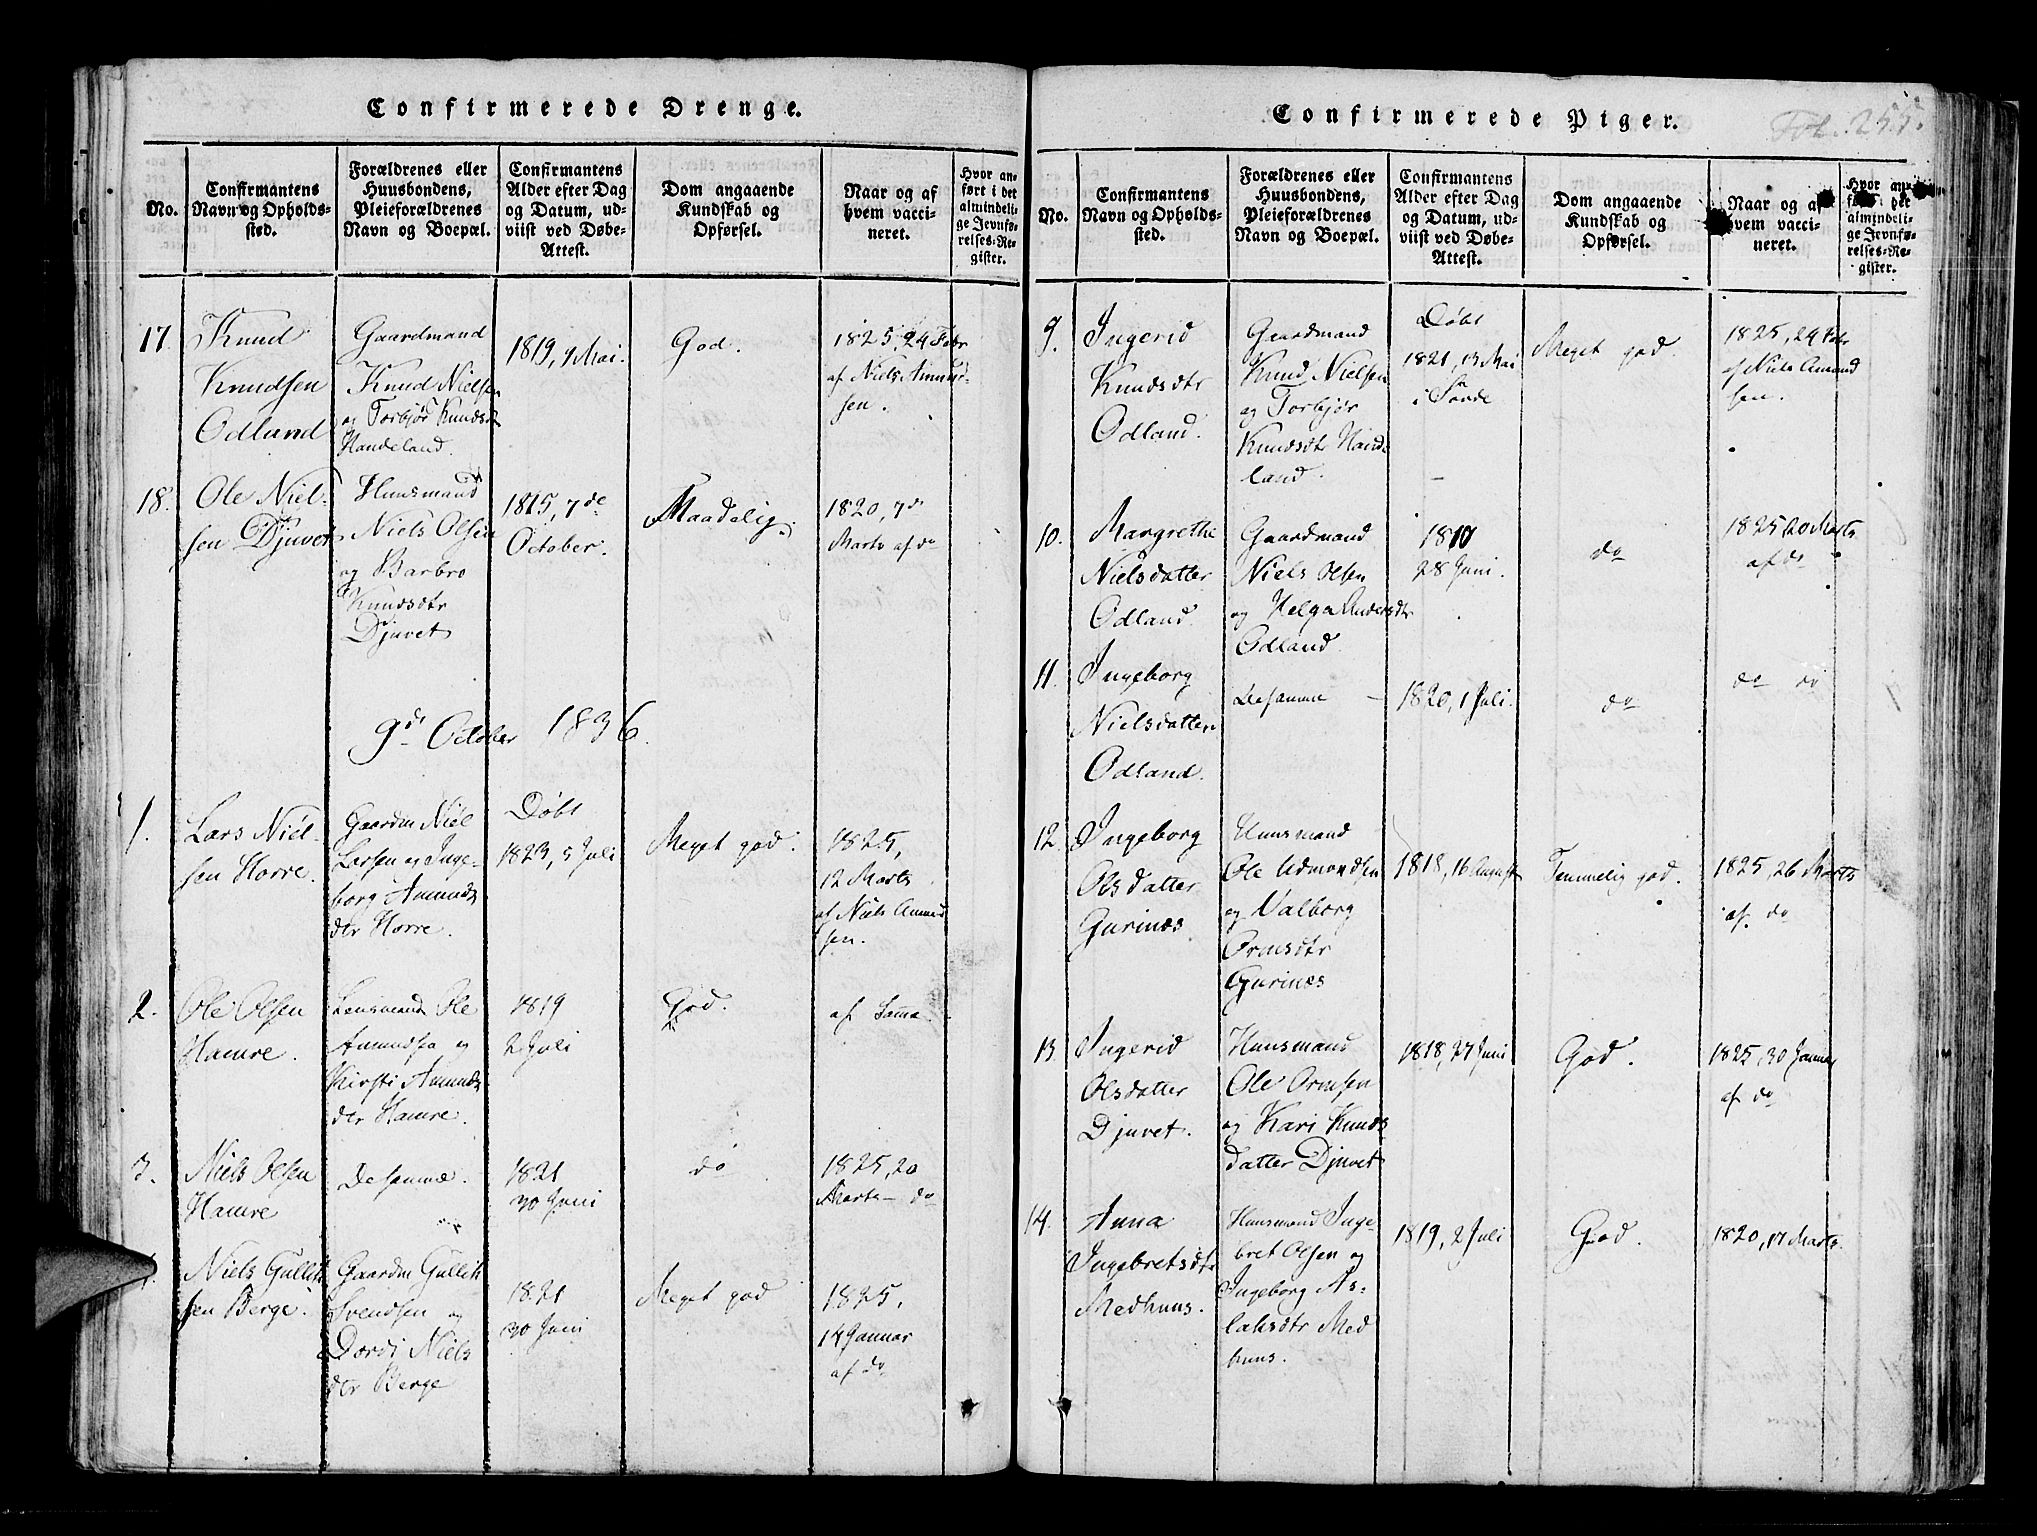 Confirmerede Drenge.
No.
Confirmantens
Navn og Opholds-
sted.
Forældrenes eller
Huusbondens,
Pleieforældrenes
Navn og Boepæl.
Confirmantens
Alder efter Dag
og Datum, ud-
viist ved Døbe-
Attest.
Dom angaaende
Kundskab og
Opførsel.
Naar og af
hvem vacci-
neret.
Hvor an-
ført i det
almindeli-
ge Jevnfø-
relses-Re-
gister.
17.
Knud
Knudsen
Odland
Gaardmand
Knud Nielsen
og Torbjør Knudsdtr
Handeland.
1819, 9 Mai.
God.
1825, 24 Febr
af Niels Amund-
sen.
18.
Ole Niel-
sen Djuvet
Huusmand
Niels Olsen
og Barbro
Knudsdtr
Djuvet
1815, 7de
October.
Maadelig.
1820, 7de
Marts af do
9de October 1836.
1.
Lars Niel-
sen Horre.
Gaardm Niel
Larsen og Inge-
borg Amunds
dtr Horre.
Døbt
1823, 5 Juli
Meget god.
1825,
12 Marts
af Niels Amund
sen.
2.
Ole Olsen
Hamre.
Lensmand Ole
Amundsen og
Kirsti Amunds
dtr Hamre.
1819
2 Juli
God.
af Samme.
3.
Niels Olsen
Hamre
De samme.
1821
30 Juni
do
1825, 20
Marts – do
4.
Niels Gullik
sen Berge.
Gaardm Gullik
Svendsen og
Dordi Niels
dtr Berge
1821
30 Juni
Meget god
1825,
14 Januar
af do
Confirmerede Piger.
Fol. 255.
No.
Confirmantens
Navn og Opholds-
sted.
Forældrenes eller
Huusbondens,
Pleieforældrenes
Navn og Boepæl.
Confirmantens
Alder efter Dag
og Datum, ud-
viist ved Døbe-
Attest.
Dom angaaende
Kundskab og
Opførsel.
Naar og af
hvem vacci-
neret.
Hvor an-
ført i det
almindeli-
ge Jevnfø-
relses-Re-
gister.
9.
Ingerid
Knudsdtr
Odland.
Gaardmand
Knud Nielsen
og Torbjør
Knudsdtr Hande
land.
Døbt
1821, 13 Mai
Meget god.
1825, 24 Febr
af Niels Amund
sen.
10.
Margrethe
Nielsdatter
Odland.
Gaardmand
Niels Olsen
og Helga Andersdtr
Odland.
28 Juni.
do
1825 20 Marts
af do
11.
Ingeborg
Nielsdatter
Odland.
De samme –
1820, 1 Juli.
do
do do
12.
Ingeborg
Olsdatter
Gurines
Huusmand
Ole Udmondsen
og Valborg
Ormsdtr
Gurines
1818, 16 August
Temmelig god.
1825, 26 Marts
af do
13.
Ingerid
Olsdatter
Djuvet.
Huusmand
Ole Ormsen
og Kari Knuds
datter Djuvet
1818, 27 Juni
God.
1825, 30 Januar
af do
14.
Anna
Ingebretsdtr
Medhuus.
Huusmand Inge-
bret Olsen og
Ingeborg As-
laksdtr Med
huus.
1819, 2 Juli
God.
1820, 17 Marts.